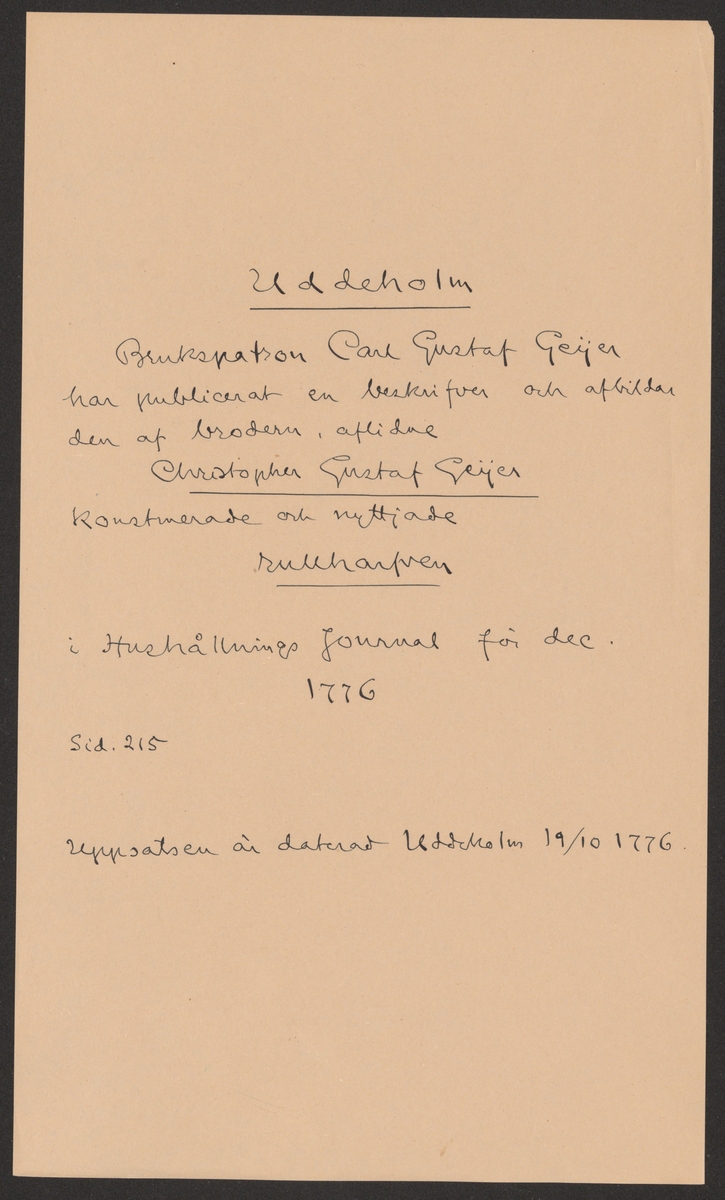 Uddeholm
Brukspatron Carl Gustaf Geijer
har publicerat en beskrifver och afbildar
den af brodern, aflidne
Christopher Gustaf Geijer
konstruerade och nyttjade
rullharfven
i Hushållnings Journal för dec.
1776
Sid. 215
Uppsatsen är daterad Uddeholm 19/10 1776.